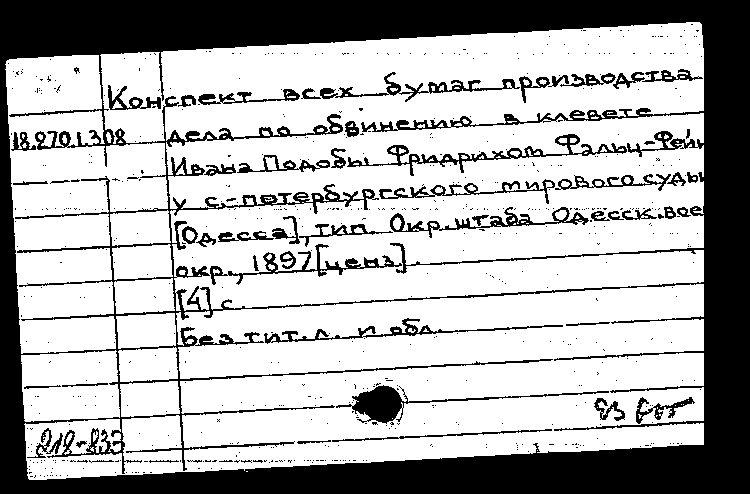 Конспект всех бумаг производства
18.270.1.308 дела по обвинению в клевете
Ивана Подобы Фридрихом Фальц-Фейн
у с.-петербургского мирового судьи
[Одесса], тип. Окр. штаба Одесск. вое
окр., 1897 [ценз].
[4] с.
Без тит. л. и обл.
218-833